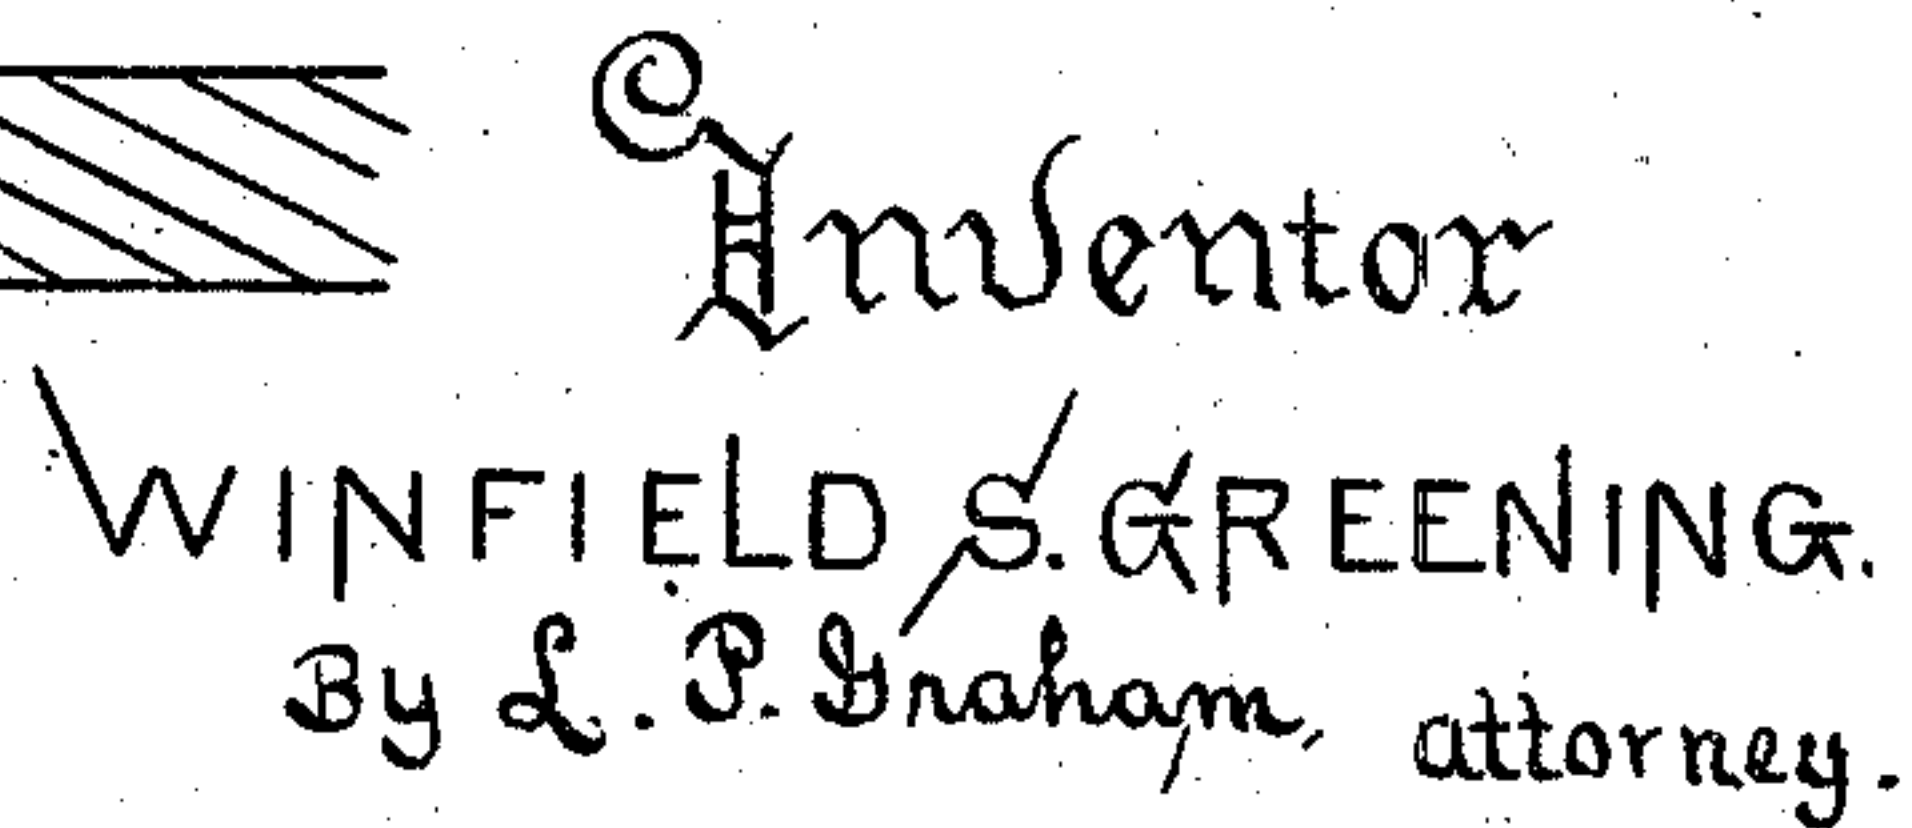 Inventor
WINFIELD S. GREENING.
By L. P. Graham, attorney.